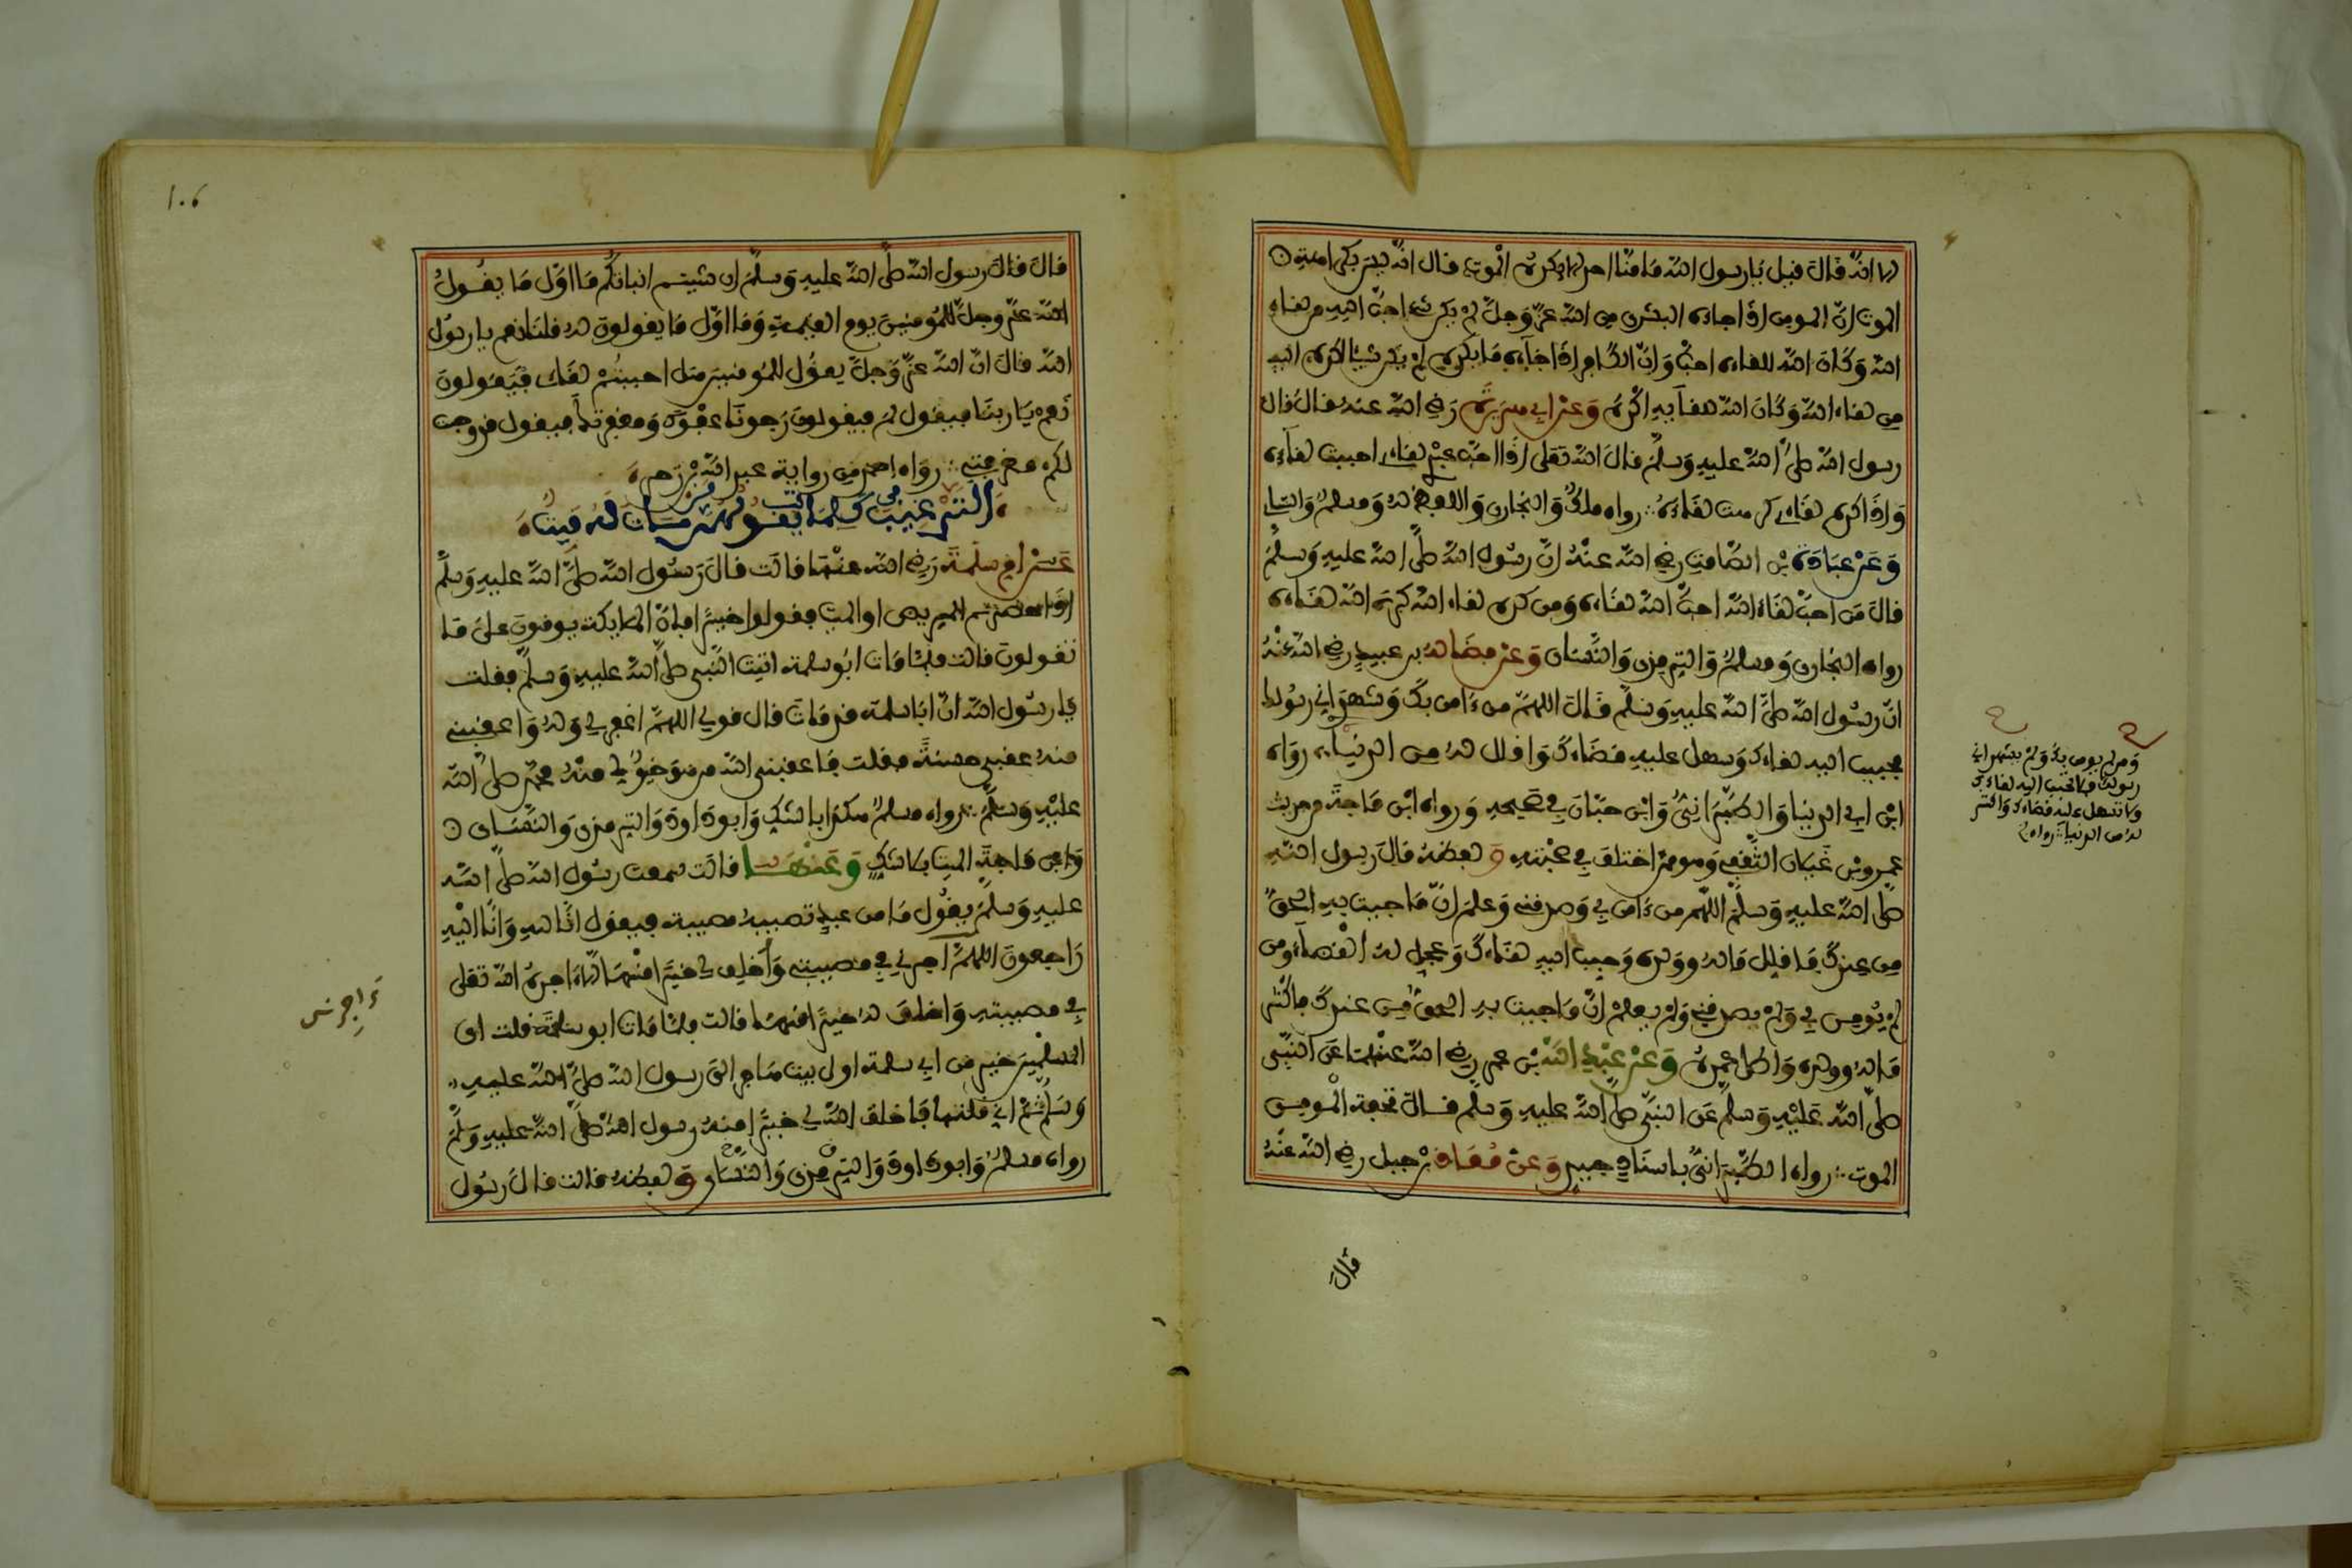 الا انه قال فيل يا رسول الله ما منا احد الا يكره الموت قال انه ليس بكراهية
الموت ان المومن اذا جاءه البشرى من الله عز وجل لم يكن شىء احب اليه من لفاء
الله وكان الله للفاءه احب وان الكافر اذا جاءه ما يكره لم يكن شيئا اكره اليه
من لفاء الله وكان الله للفآيه اكره وعن ابي هريرة رضي الله عنه فال فال
رسول الله صلى الله عليه وسلم فال الله تعلى اذا احب عبدي لفاءي احببت لفاءه
واذا كره لفاءي كرهت لفاءه رواه ملك والبخاري واللفظ له ومسلم والنساي
وعن عبادة بن الصامت رضي الله عنه ان رسول الله صلى الله عليه وسلم
فال من احب لفاء الله احب الله لفاءه ومن كره لفاء الله كره الله لفاءه
رواه البخاري ومسلم والترمذي والنساي وعن فضالة بن عبيد رضي الله عنه
ان رسول الله صلى الله عليه وسلم فال اللهم من ءامن بك وشهد اني رسولك
فحبب اليه لفاءك وسهل عليه فضاءك وافلل له من الدنيا رواه
ابن ابي الدنيا والطبراني وابن حبان في صحيحه ورواه ابن ماجة من حديث
عمرو بن غيلان الثففي وهو ممن اختلف في صحبته ولفظه فال رسول الله
صلى الله عليه وسلم اللهم من ءامن بي وصدفني وعلم ان ما جيت به الحق
من عندك فافلل ماله وولده وحبب اليه لفاءك وعجل له الفضاء ومن
لم يومن بي ولم يصدفني ولم يعلم ان ما جيت به الحق من عندك فاكثر
ماله وولده واطل عمره وعن عبد الله بن عمر رضي الله عنهما عن النبي
صلى الله عليه وسلم عن النبي صلى الله عليه وسلم فال تحفة المومن
الموت رواه الطبراني باسناد جيد وعن معاذ بن جبل رضي الله عنه
فال
ومن لم يومن بك ولم يشهد اني
رسولك فلا تحبب اليه لفاءك
ولا تسهل عليه فضاءك واكثر
له من الدنيا رواه
106
فال فال رسول الله صلى الله عليه وسلم ان شيتم انباتكم ما اول ما يفول
الله عز وجل للمومنين يوم الفيمة وما اول ما يفولون له فلنا نعم يا رسول
الله فال ان الله عز وجل يفول للمومنين هل احببتم لفاي فيفولون
نعم يا ربنا فيفول لم فيفولون رجونا عفوك ومغفرتك فيفول فد وجبت
لكم مغفرتي رواه احمد من رواية عبيد الله بن زحر
الترغيب في كلمات يفولهن من مات له ميت
عن ام سلمة رضي الله عنها فالت فال رسول الله صلى الله عليه وسلم
اذا حضرتم المريض او الميت ففولوا خيرا فان الملايكة يومنون على ما
تفولون فالت فلما مات ابو سلمة اتيت النبي صلى الله عليه وسلم ففلت
يا رسول الله ان ابا سلمة فد مات فال فولي اللهم اغفر لي وله واعفبني
منه عفبى حسنة ففلت فاعفبني الله من هو خير لي منه محمد صلى الله
عليه وسلم رواه مسلم هكذا بالشك وابو داود والترمذي والنساي
وابن ماجة الميت بلا شك وعنها فالت سمعت رسول الله صلى الله
عليه وسلم يفول ما من عبد تصيبه مصيبة فيفول انا لله وانا اليه
راجعون اللهم اجرني في مصيبتي واخلف لي خيرا منها الا اجره الله تعلى
في مصيبته واخلف له خيرا منها فالت فلما مات ابو سلمة فلت اي
المسلمين خير من ابي سلمة اول بيت هاجر الى رسول الله صلى الله عليه
وسلم ثم اني فلتها فاخلف الله لي خيرا منه رسول الله صلى الله عليه وسلم
رواه مسلم وابو داود والترمذي والنساي ولفظه فالت فال رسول